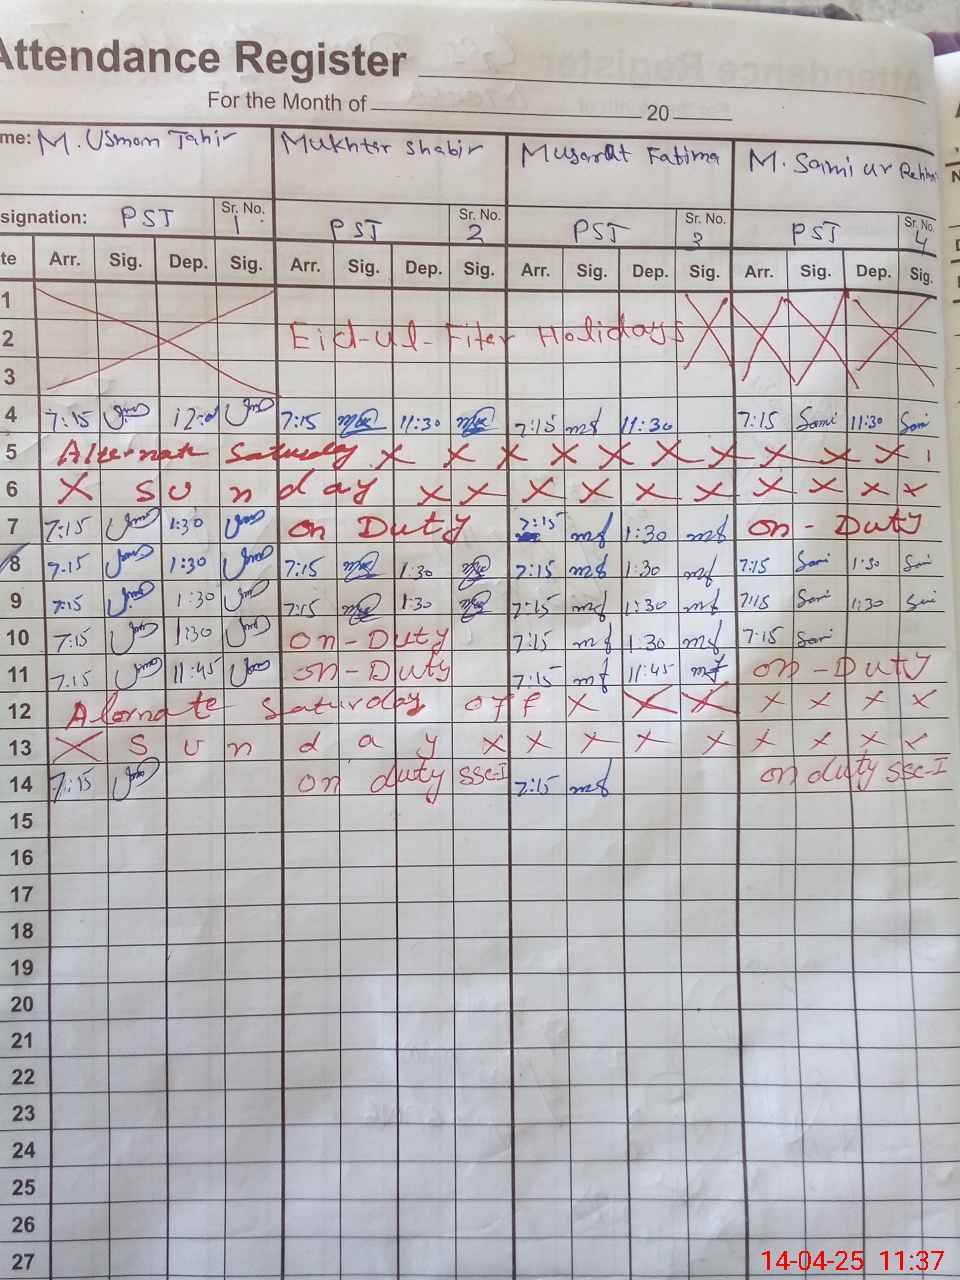 Attendance Register
For the Month of 20
me: M. Usman Tahir Mukhter Shabir Musarat Fatima M. Sami ur Rehm
signation: PST Sr. No. 1 PST Sr. No. 2 PST Sr. No. 3 PST Sr. No. 4
te Arr. Sig. Dep. Sig. Arr. Sig. Dep. Sig. Arr. Sig. Dep. Sig. Arr. Sig. Dep. Sig.
1
2 Eid-ul-Fiter Holidays
3
4 7:15 7:15 11:30 7:15 mf 11:30 7:15 Sami 11:30 Sami
5 Alternate Saturday X X X X X X X X X X
6 X S u n d a y X X X X X X X X X X
7 7:15 1:30 on Duty 7:15 mf 1:30 mf on - Duty
8 7:15 1:30 7:15 1:30 7:15 mf 1:30 mf 7:15 Sami 1:30 Sami
9 7:15 1:30 7:15 1:30 7:15 mf 1:30 mf 7:15 Sami 1:30 Sami
10 7:15 1:30 On-Duty 7:15 mf 1:30 mf 7:15 Sami
11 7:15 11:45 on-Duty 7:15 mf 11:45 mf on-Duty
12 Alornate Saturday off X X X X X X X
13 X S u n d a y X X X X X X X X X
14 7:15 on duty SSC-I 7:15 mf on duty SSC-I
15
16
17
18
19
20
21
22
23
24
25
26
27
14-04-25 11:37